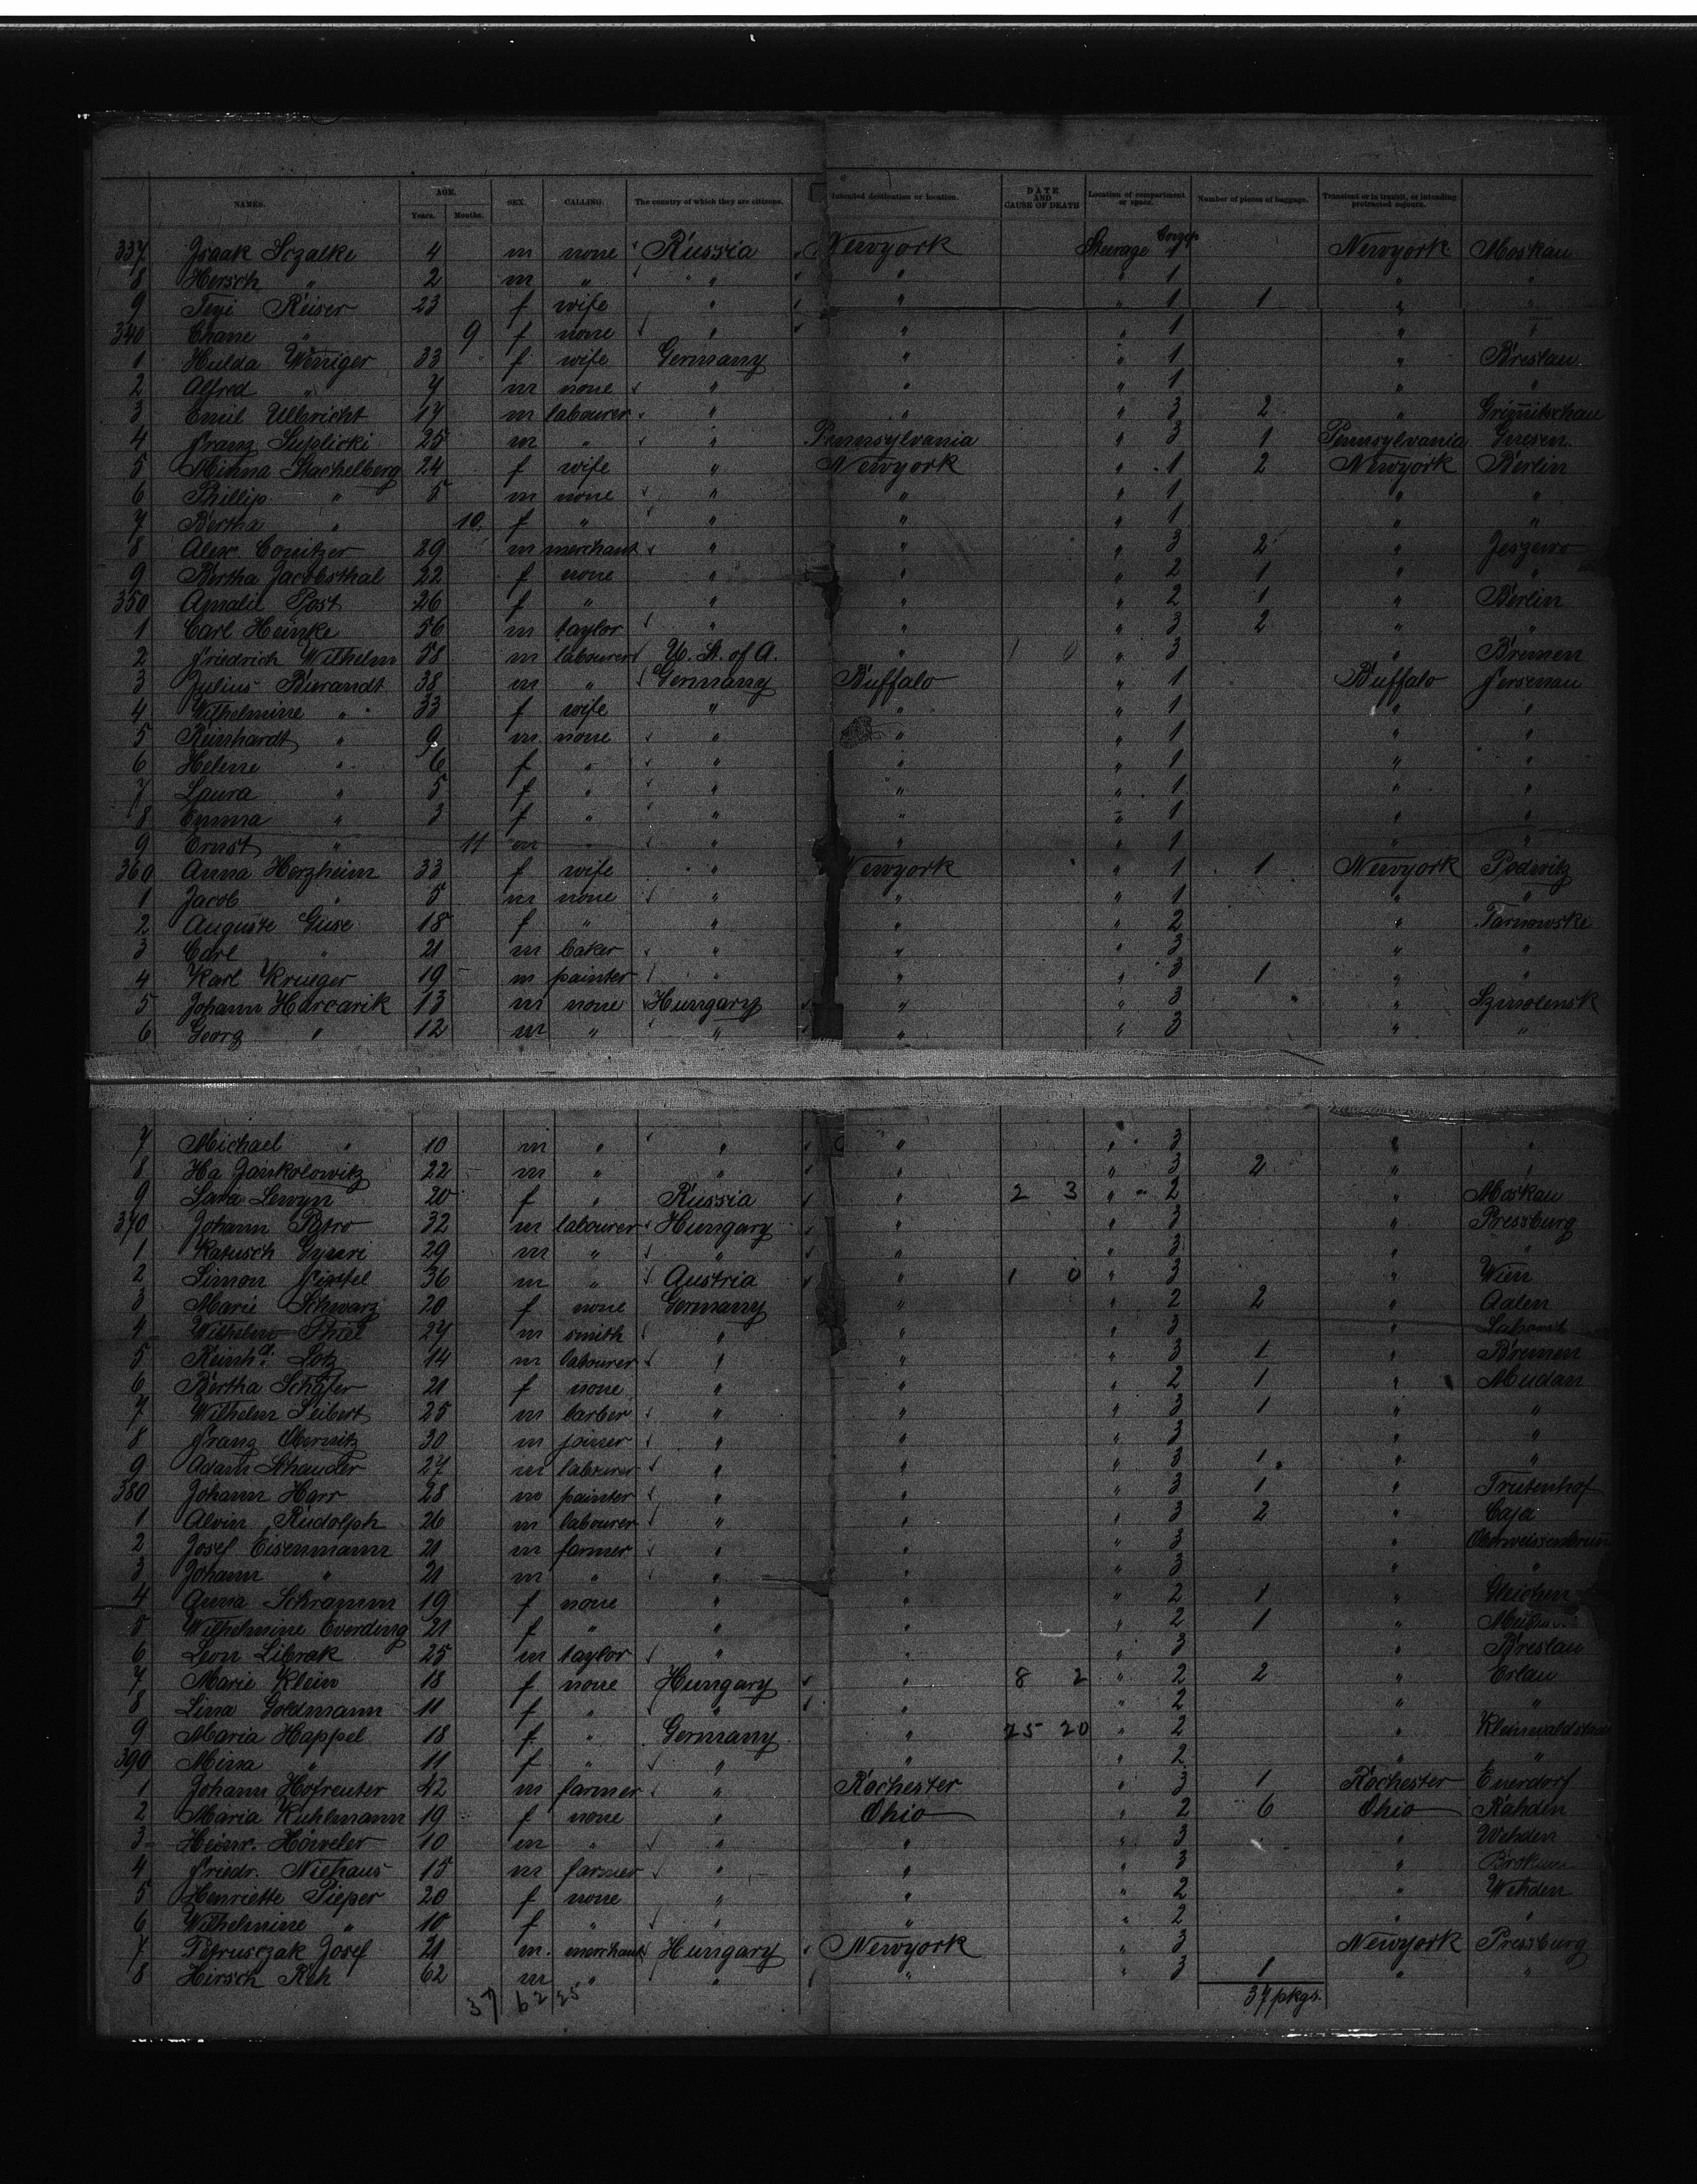 NAMES. AGE. SEX. CALLING. The country of which they are citizens. Intended destination or location. DATE AND CAUSE OF DEATH Location of compartment or space. Number of pieces of baggage. Transient or in transit, or intending protracted sojourn.
Years. Months.
337 Isaak Sczalke 4 m none Russia Newyork Steerage 1 Newyork Moskau
8 Hersch " 2 m " " " " 1 " "
9 Reiser 23 f wife " " " 1 1 " "
340 Chane " 9 f none " " " 1 " "
1 Hulda Weniger 33 f wife Germany " " 1 " Breslau
2 Alfred " 7 m none " " " 1 " "
3 Emil Ullricht 17 m labourer " " " 3 2 " Grimitschau
4 Franz Suplicki 25 m " " Pennsylvania " 3 1 Pennsylvania Gnesen
5 Minna Stachelberg 24 f wife " Newyork " 1 2 Newyork Berlin
6 Phillip " 5 m none " " " 1 " "
7 Bertha " 10 f " " " " 1 " "
8 Alex. Conitzer 29 m merchant " " " 3 2 " Jeszewo
9 Bertha Jacobsthal 22 f none " " " 2 1 " "
350 Amalie Post 26 f " " " " 2 1 " Berlin
1 Carl Heinke 56 m taylor " " " 3 2 " "
2 Friedrich Wilhelm 58 m labourer U. St. of A. " 1 0 " 3 " Bremen
3 Julius Bierandt 38 m " Germany Buffalo " 1 Buffalo Fersenau
4 Wilhelmine " 33 f wife " " " 1 " "
5 Reinhardt " 9 m none " " " 1 " "
6 Helene " 6 f " " " " 1 " "
7 Laura " 5 f " " " " 1 " "
8 Emma " 3 f " " " " 1 " "
9 Ernst " 11 m " " " " 1 " "
360 Anna Herzheim 33 f wife " Newyork " 1 1 Newyork Podwitz
1 Jacob " 5 m none " " " 1 " "
2 Auguste Guse 18 f " " " " 2 " Tarnowske
3 Carl " 21 m baker " " " 3 " "
4 Karl Krueger 19 m painter " " " 3 1 " "
5 Johann Harcarik 13 m none Hungary " " 3 " Szmolensk
6 Georg " 12 m " " " " 3 " "
7 Michael " 10 m " " " " 3 " "
8 Ha Jankolowitz 22 m " " " " 3 2 " "
9 Sara Lewyn 20 f " Russia " 2 3 " 2 " Moskau
370 Johann Patro 32 m labourer Hungary " " 3 " Pressburg
1 Katusch Gyuri 29 m " " " " 3 " "
2 Simon 36 m " Austria " 1 0 " 3 " Wien
3 Marie Schwarz 20 f none Germany " " 2 2 " Aalen
4 Wilhelm Thiel 27 m smith " " " 3 "
5 Reinhd. Lotz 14 m labourer " " " 3 1 " Bremen
6 Bertha Schäfer 21 f none " " " 2 1 " Mudan
7 Wilhelm Seibert 25 m barber " " " 3 1 " "
8 Franz Obernitz 30 m joiner " " " 3 " "
9 Adam Schauder 27 m labourer " " " 3 1 " "
380 Johann Harr 28 m painter " " " 3 1 " Trutenhof
1 Alvin Rudolph 26 m labourer " " " 3 2 " Caja
2 Josef Eisenmann 21 m farmer " " " 3 " Oberweissenbrunn
3 Johann " 21 m " " " " 3 " "
4 Anna Schramm 19 f none " " " 2 1 " Gleichen
5 Wilhelmine Everding 21 f " " " " 2 1 "
6 Leon Librak 25 m taylor " " " 3 " Breslau
7 Marie Klein 18 f none Hungary " 8 2 " 2 2 " Erlau
8 Lina Goldmann 11 f " " " " 2 " "
9 Maria Happel 18 f " Germany " 25 20 " 2 "
390 Mina " 11 f " " " " 2 " "
1 Johann Hofreuter 42 m farmer " Rochester " 3 1 Rochester Euerdorf
2 Maria Kuhlmann 19 f none " Ohio " 2 6 Ohio Rahden
3 Heinr. Höweler 10 m " " " " 3 " Wehden
4 Friedr. Niehaus 15 m farmer " " " 3 " Brokum
5 Henriette Pieper 20 f none " " " 2 " Wehden
6 Wilhelmine " 10 f " " " " 2 " "
7 Petrusczak Josef 21 m. merchant Hungary Newyork " 3 Newyork Pressburg
8 Hirsch Reh 62 m " " " " 3 1 " "
37 62 25 37 pkgs.